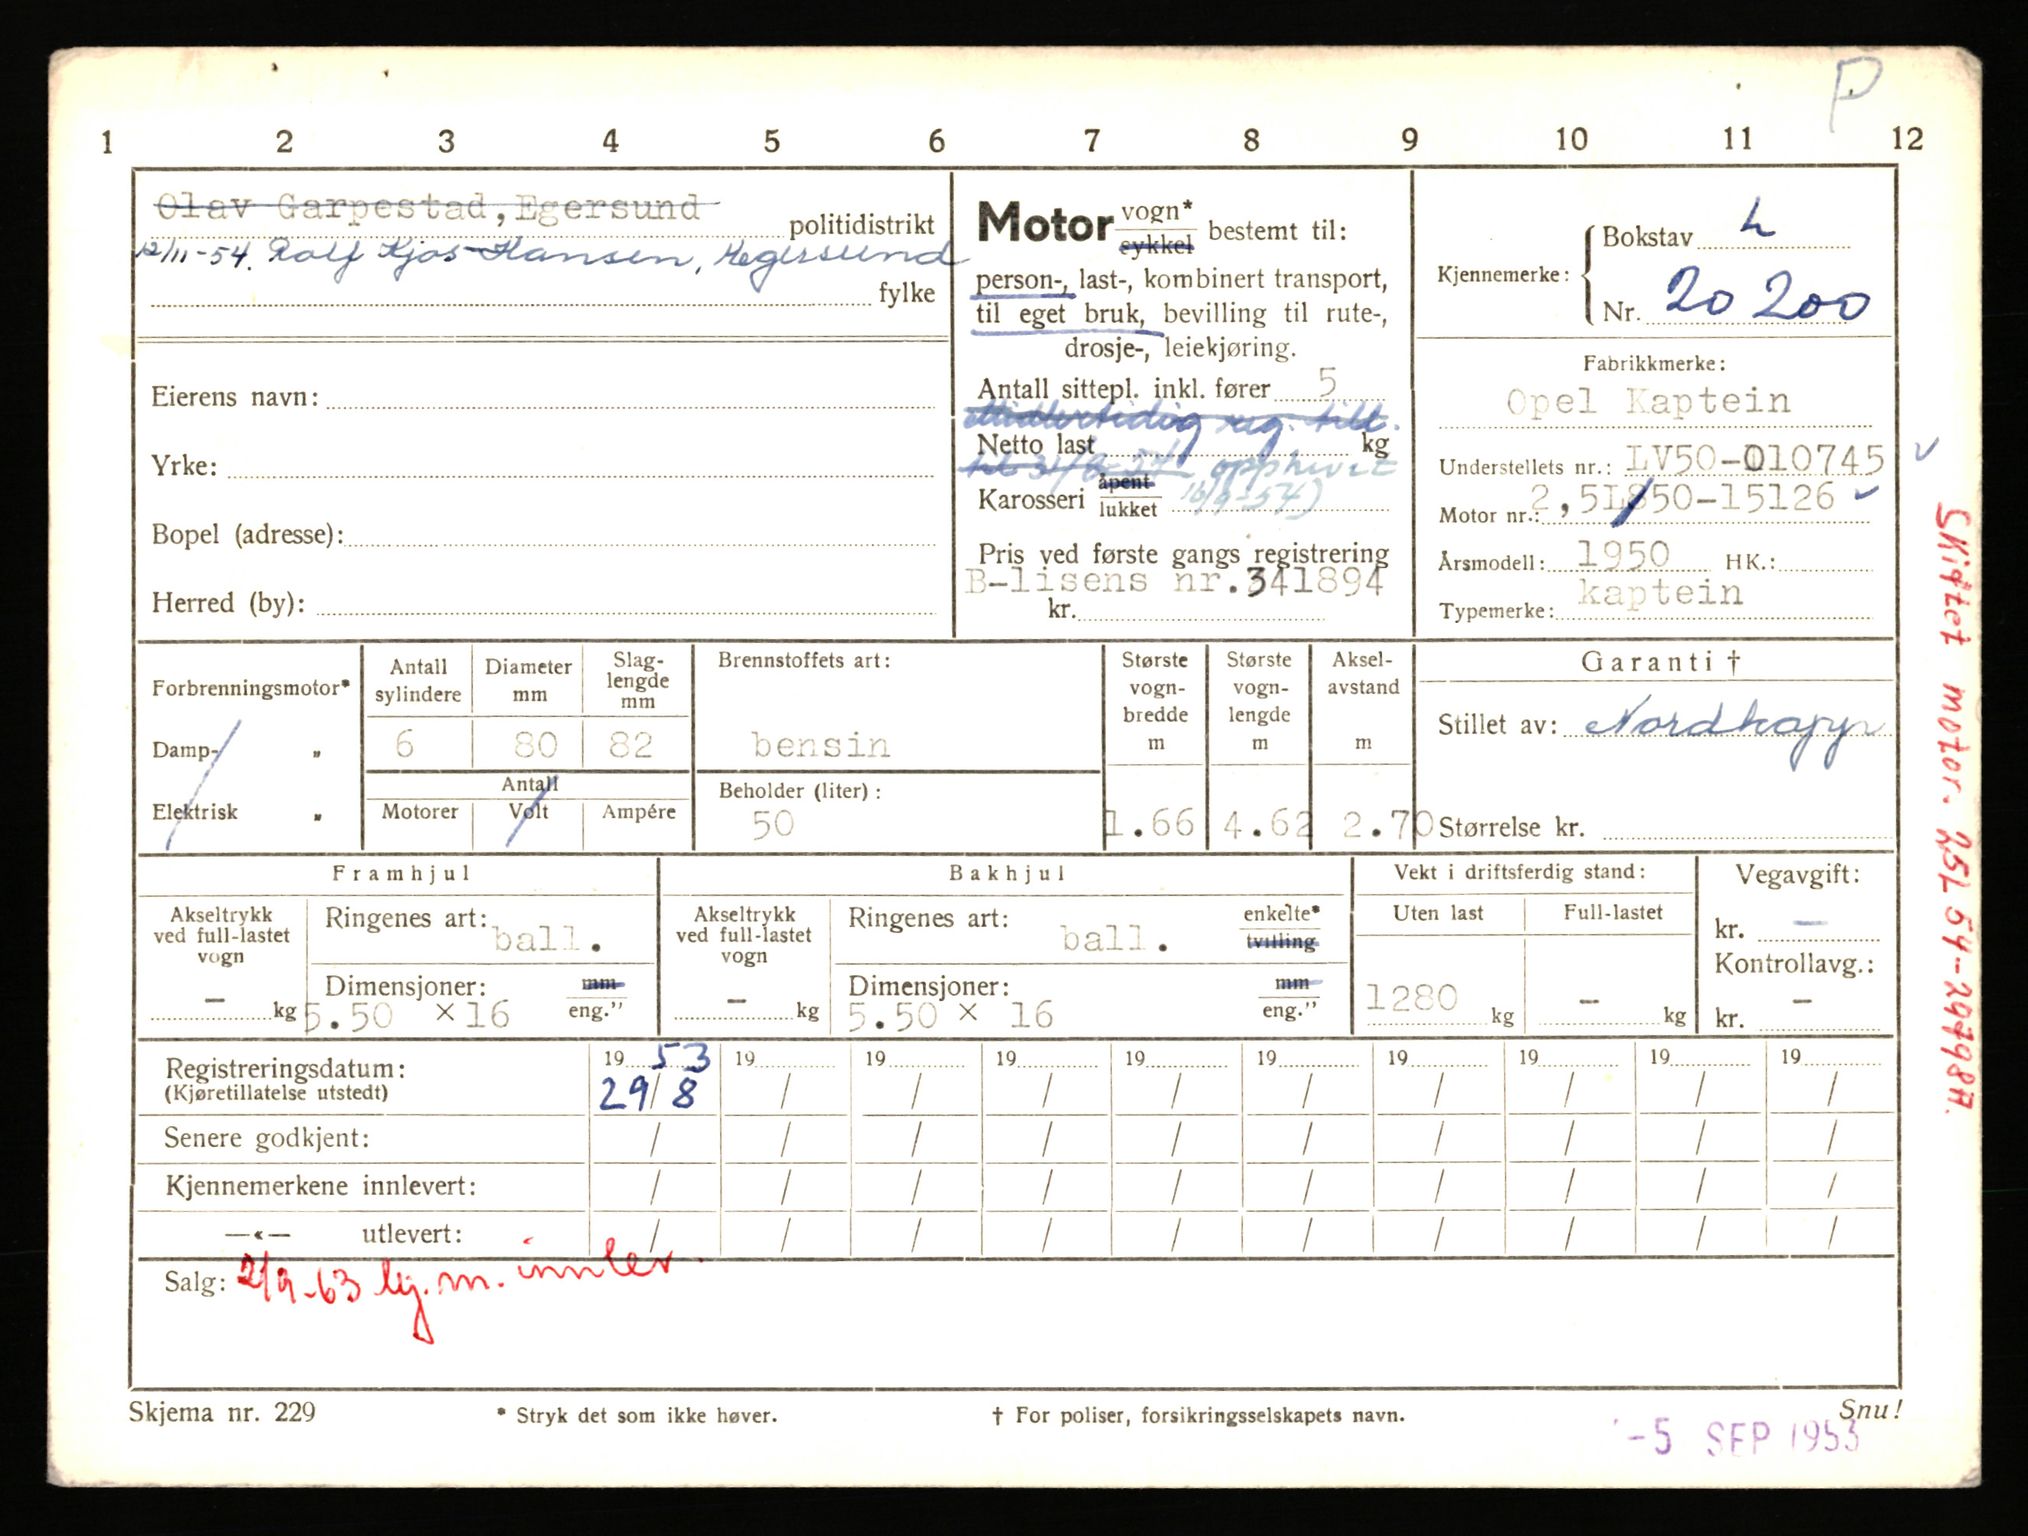 P
1 2 3 4 5 6 7 8 9 10 11 12
Olav Garpestad, Egersund politidistrikt
12/11-54. Rolf Kjos-Hansen, Hegersund
fylke
Eierens navn:
Yrke:
Bopel (adresse):
Herred (by):
Motor vogn* sykkel bestemt til:
person-, last-, kombinert transport,
til eget bruk, bevilling til rute-,
drosje-, leiekjøring.
Antall sittepl. inkl. fører 5
Midlertidig reg. till.
Netto last kg
til 31/8-54 opphevet
Karosseri åpent lukket 16/9-54)
Pris ved første gangs registrering
B-lisens nr.341894
kr.
Kjennemerke: Bokstav L
Nr. 20200
Fabrikkmerke:
Opel Kaptein
Understellets nr.: LV50-010745
Motor nr.: 2,5L850-15126
Årsmodell: 1950 HK.:
Typemerke: kaptein
Skiftet motor. 25L 54-29798A.
Forbrenningsmotor*
Damp- „
Elektrisk „
Antall sylindere 6
Diameter mm 80
Slag-lengde mm 82
Antall
Motorer Volt Ampére
Brennstoffets art:
bensin
Beholder (liter):
50
Største vogn-bredde m 1.66
Største vogn-lengde m 4.62
Aksel-avstand m 2.70
Garanti †
Stillet av:
Størrelse kr.
Framhjul
Akseltrykk ved full-lastet vogn – kg
Ringenes art: ball.
Dimensjoner: mm eng."
5.50 × 16
Bakhjul
Akseltrykk ved full-lastet vogn – kg
Ringenes art: ball. enkelte* tvilling
Dimensjoner: mm eng."
5.50 × 16
Vekt i driftsferdig stand:
Uten last Full-lastet
1280 kg – kg
Vegavgift:
kr. –
Kontrollavg.:
kr. –
Registreringsdatum: 1953 19 19 19 19 19 19 19 19 19
(Kjøretillatelse utstedt) 29/8 / / / / / / / / /
Senere godkjent: / / / / / / / / / /
Kjennemerkene innlevert: / / / / / / / / / /
—«— utlevert: / / / / / / / / / /
Salg: 2/9-63 kj.m. innlev.
Skjema nr. 229 * Stryk det som ikke høver. † For poliser, forsikringsselskapets navn. Snu!
-5 SEP 1953